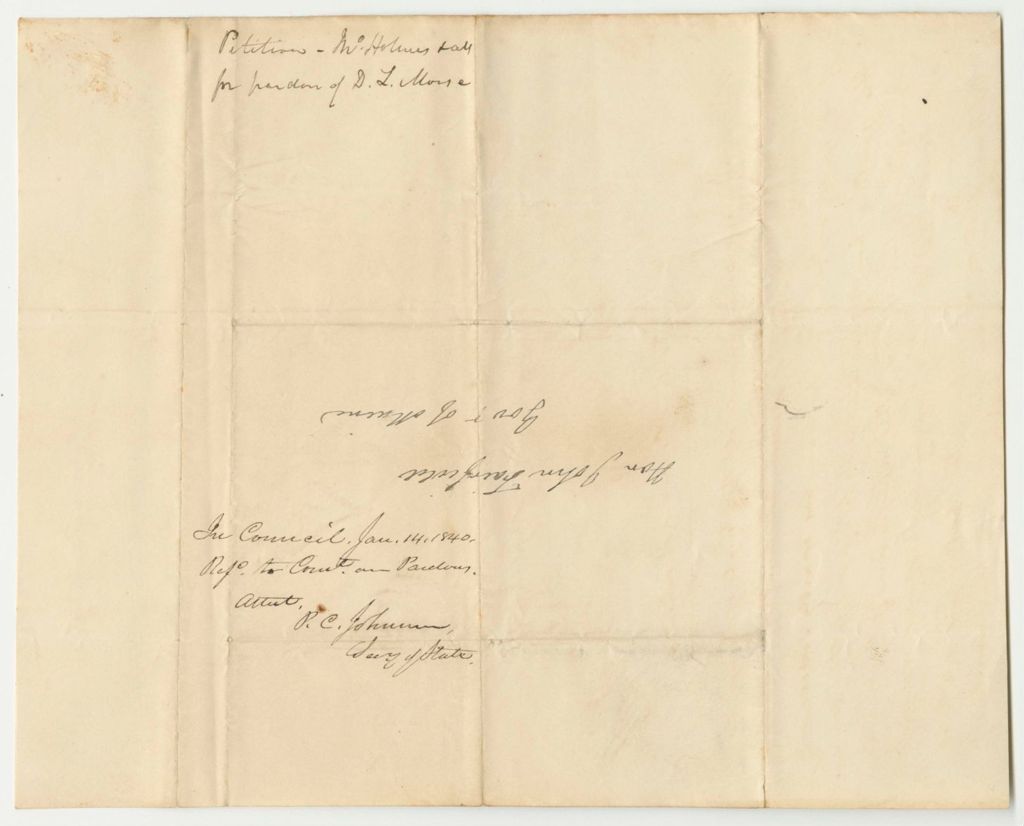 Petition - Mr. Holmes & als
for pardon of D. L. Morse
Hon John Fairfield
Gov.r of Maine
In Council, Jan. 14, 1840.
Ref.d to Com.t on Pardons.
Attest,
P. C. Johnson,
Secy of State.